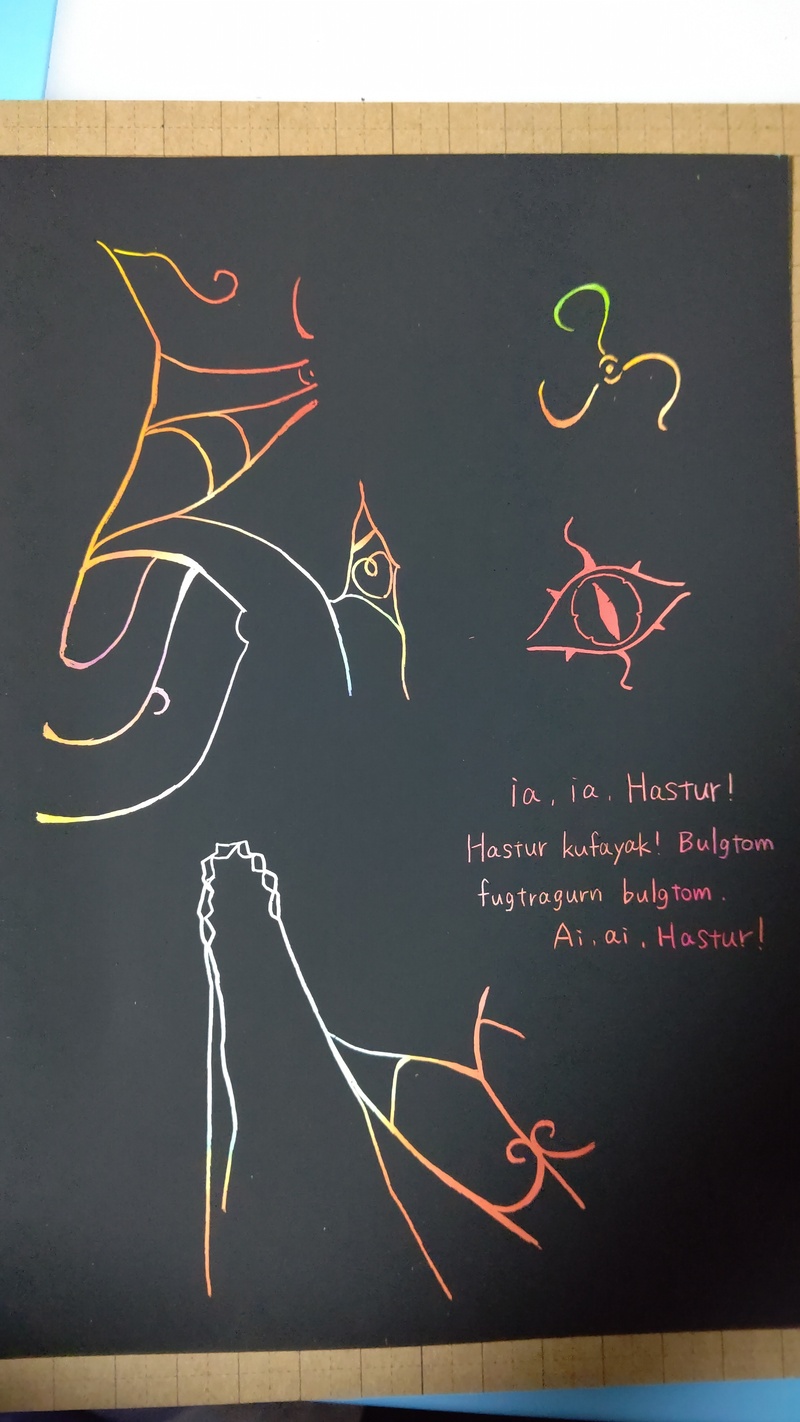 ia, ia, Hastur!
Hastur kufayak! Bulgtom
fugtragurn bulgtom.
Ai, ai, Hastur!